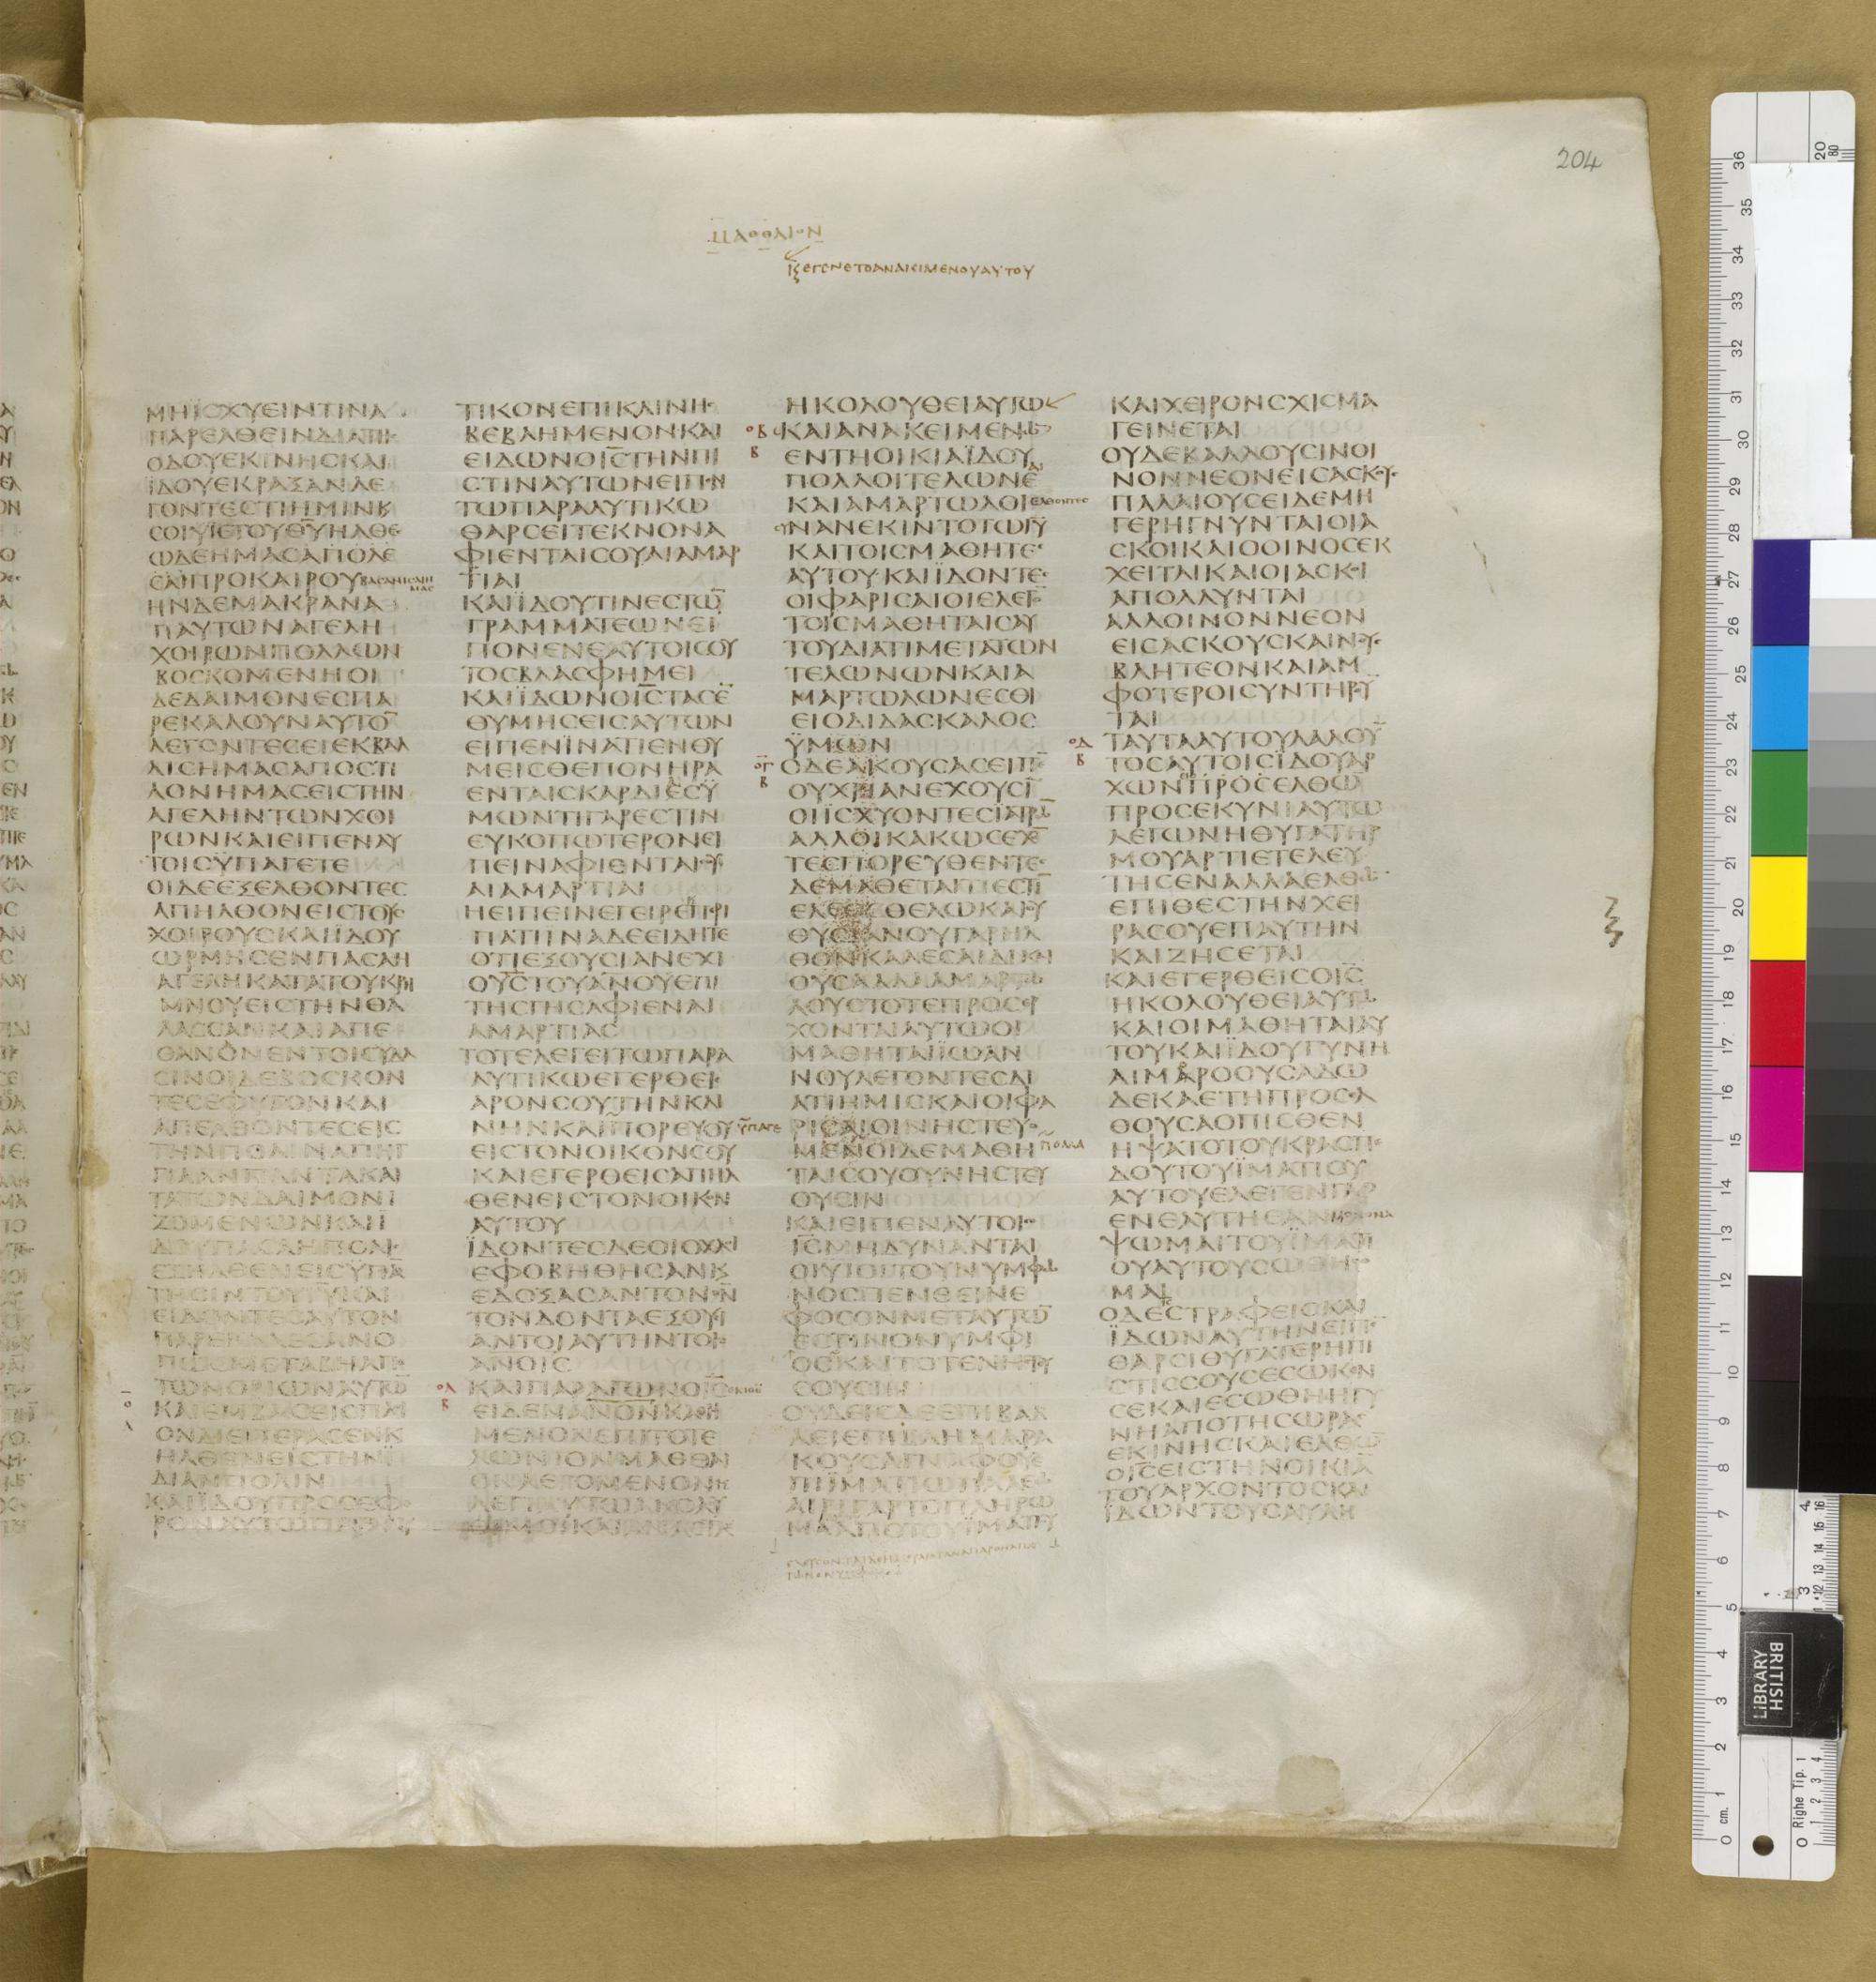 204
ΜΑΘΘΑΙΟΝ
Κ, ΕΓΕΝΕΤΟ ΑΝΑΚΙΜΕΝΟΥ ΑΥΤΟΥ
ΜΗΪΣΧΥΕΙΝΤΙΝΑ
ΠΑΡΕΛΘΕΙΝΔΙΑΤΗϹ
ΟΔΟΥΕΚΙΝΗϹΚΑΙ
ΪΔΟΥΕΚΡΑΞΑΝΛΕ
ΓΟΝΤΕϹΤΙΗΜΙΝΚ
ϹΟΙΥΙΕΤΟΥΘΥΗΛΘΕϹ
ΩΔΕΗΜΑϹΑΠΟΛΕ
ϹΑΙΠΡΟΚΑΙΡΟΥ ΒΑϹΑΝΙϹΑΙΗΜΑϹ
ΗΝΔΕΜΑΚΡΑΝΑ
ΠΑΥΤΩΝΑΓΕΛΗ
ΧΟΙΡΩΝΠΟΛΛΩΝ
ΒΟϹΚΟΜΕΝΗΟΙ
ΔΕΔΑΙΜΟΝΕϹΠΑ
ΡΕΚΑΛΟΥΝΑΥΤΟ̅
ΛΕΓΟΝΤΕϹΕΙΕΚΒΑΛ
ΛΙϹΗΜΑϹΑΠΟϹΤΙ
ΛΟΝΗΜΑϹΕΙϹΤΗΝ
ΑΓΕΛΗΝΤΩΝΧΟΙ
ΡΩΝΚΑΙΕΙΠΕΝΑΥ
ΤΟΙϹΫΠΑΓΕΤΕ
ΟΙΔΕΕΞΕΛΘΟΝΤΕϹ
ΑΠΗΛΘΟΝΕΙϹΤΟΥϹ
ΧΟΙΡΟΥϹΚΑΙΪΔΟΥ
ΩΡΜΗϹΕΝΠΑϹΑΗ
ΑΓΕΛΗΚΑΤΑΤΟΥΚΡΗ
ΜΝΟΥΕΙϹΤΗΝΘΑ
ΛΑϹϹΑΝΚΑΙΑΠΕ
ΘΑΝΟΝΕΝΤΟΙϹΥΔΑ
ϹΙΝΟΙΔΕΒΟϹΚΟΝ
ΤΕϹΕΦΥΓΟΝΚΑΙ
ΑΠΕΛΘΟΝΤΕϹΕΙϹ
ΤΗΝΠΟΛΙΝΑΠΗΓ
ΓΙΛΑΝΠΑΝΤΑΚΑΙ
ΤΑΤΩΝΔΑΙΜΟΝΙ
ΖΟΜΕΝΩΝΚΑΙΪ
ΔΟΥΠΑϹΑΗΠΟΛΙϹ
ΕΞΗΛΘΕΝΕΙϹΫΠΑ̅
ΤΗϹΙΝΤΟΥΙΥΚΑΙ
ΕΙΔΟΝΤΕϹΑΥΤΟΝ
ΠΑΡΕΚΑΛΕϹΑΝΟ
ΠΩϹΜΕΤΑΒΗΑΠΟ
ΤΩΝΟΡΙΩΝΑΥΤΩ̅
ΚΑΙΕΜΒΑϹΕΙϹΠΛΙ
ΟΝΔΙΕΠΕΡΑϹΕΝΚ
ΗΛΘΕΝΕΙϹΤΗΝΪ
ΔΙΑΝΠΟΛΙΝ
ΚΑΙΪΔΟΥΠΡΟϹΕΦΕ
ΡΟΝΑΥΤΩΠΑΡΑΛΥ
ΤΙΚΟΝΕΠΙΚΛΙΝΗϹ
ΒΕΒΛΗΜΕΝΟΝΚΑΙ
ΕΙΔΩΝΟΙ̅Ϲ̅ΤΗΝΠΙ
ϹΤΙΝΑΥΤΩΝΕΙΠΕΝ
ΤΩΠΑΡΑΛΥΤΙΚΩ
ΘΑΡϹΕΙΤΕΚΝΟΝΑ
ΦΙΕΝΤΑΙϹΟΥΑΙΑΜΑΡ
ΤΙΑΙ
ΚΑΙΪΔΟΥΤΙΝΕϹΤΩ̅
ΓΡΑΜΜΑΤΕΩΝΕΙ
ΠΟΝΕΝΕΑΥΤΟΙϹΟΥ
ΤΟϹΒΛΑϹΦΗΜΕΙ
ΚΑΙΪΔΩΝΟΙ̅Ϲ̅ΤΑϹΕ̅
ΘΥΜΗϹΕΙϹΑΥΤΩΝ
ΕΙΠΕΝΪΝΑΤΙΕΝΘΥ
ΜΕΙϹΘΕΠΟΝΗΡΑ
ΕΝΤΑΙϹΚΑΡΔΙΕϹΫ
ΜΩΝΤΙΓΑΡΕϹΤΙΝ
ΕΥΚΟΠΩΤΕΡΟΝΕΙ
ΠΕΙΝΑΦΙΕΝΤΑΙϹΟΥ
ΑΙΑΜΑΡΤΙΑΙ
ΗΕΙΠΕΙΝΕΓΕΙΡΕΠΕΡΙ
ΠΑΤΙΪΝΑΔΕΕΙΔΗΤΕ
ΟΤΙΕΞΟΥϹΙΑΝΕΧΙ
ΟΥ̅Ϲ̅ΤΟΥΑΝΟΥΕΠΙ
ΤΗϹΓΗϹΑΦΙΕΝΑΙ
ΑΜΑΡΤΙΑϹ
ΤΟΤΕΛΕΓΕΙΤΩΠΑΡΑ
ΛΥΤΙΚΩΕΓΕΡΘΕΙϹ
ΑΡΟΝϹΟΥΤΗΝΚΛΙ
ΝΗΝΚΑΙΠΟΡΕΥΟΥ ΫΠΑΓΕ
ΕΙϹΤΟΝΟΙΚΟΝϹΟΥ
ΚΑΙΕΓΕΡΘΕΙϹΑΠΗΛ
ΘΕΝΕΙϹΤΟΝΟΙΚΟΝ
ΑΥΤΟΥ
ΪΔΟΝΤΕϹΔΕΟΙΟΧΛΟΙ
ΕΦΟΒΗΘΗϹΑΝΚ
ΕΔΟΞΑϹΑΝΤΟΝΘΝ
ΤΟΝΔΟΝΤΑΕΞΟΥϹΙ
ΑΝΤΟΙΑΥΤΗΝΤΟΙϹ
ΑΝΟΙϹ
ΟΑ Β ΚΑΙΠΑΡΑΓΩΝΟΙ̅Ϲ̅
ΕΙΔΕΝΑΝΟΝΚΑΘΗ
ΜΕΝΟΝΕΠΙΤΟΤΕ
ΛΩΝΙΟΝΜΑΘΘΑΙ
ΟΝΛΕΓΟΜΕΝΟΝΚ
ΛΕΓΕΙΑΥΤΩΑΚΟΛΟΥ
ΘΙΜΟΙΚΑΙΑΝΑϹΤΑϹ
ΗΚΟΛΟΥΘΕΙΑΥΤΩ
ΟΒ Β ΚΑΙΑΝΑΚΕΙΜΕΝΩ̅
ΕΝΤΗΟΙΚΙΑΪΔΟΥ
ΠΟΛΛΟΙΤΕΛΩΝΕ
ΚΑΙΑΜΑΡΤΩΛΟΙ ΕΛΘΟΝΤΕϹ
ϹΥΝΑΝΕΚΙΝΤΟΤΩΙΥ
ΚΑΙΤΟΙϹΜΑΘΗΤΕϹ
ΑΥΤΟΥΚΑΙΪΔΟΝΤΕϹ
ΟΙΦΑΡΙϹΑΙΟΙΕΛΕΓΟ̅
ΤΟΙϹΜΑΘΗΤΑΙϹΑΥ
ΤΟΥΔΙΑΤΙΜΕΤΑΤΩΝ
ΤΕΛΩΝΩΝΚΑΙΑ
ΜΑΡΤΩΛΩΝΕϹΘΙ
ΕΙΟΔΙΔΑϹΚΑΛΟϹ
ΫΜΩΝ
ΟΓ Β ΟΔΕΑΚΟΥϹΑϹΕΙΠΕ̅
ΟΥΧΡΙΑΝΕΧΟΥϹΙ̅
ΟΙΙϹΧΥΟΝΤΕϹΪΑΤΡΩ̅
ΑΛΛΟΙΚΑΚΩϹΕΧΟ̅
ΤΕϹΠΟΡΕΥΘΕΝΤΕϹ
ΔΕΜΑΘΕΤΑΙΤΙΕϹΤΙ̅
ΕΛΕΟϹΘΕΛΩΚΑΙΟΥ
ΘΥϹΙΑΝΟΥΓΑΡΗΛ
ΘΟΝΚΑΛΕϹΑΙΔΙΚΑΙ
ΟΥϹΑΛΛΑΑΜΑΡΤΩ
ΛΟΥϹΤΟΤΕΠΡΟϹΕΡ
ΧΟΝΤΑΙΑΥΤΩΟΙ
ΜΑΘΗΤΑΙΪΩΑΝ
ΝΟΥΛΕΓΟΝΤΕϹΔΙ
ΑΤΙΗΜΙϹΚΑΙΟΙΦΑ
ΡΙϹΑΙΟΙΝΗϹΤΕΥΟ
ΜΕΝΟΙΔΕΜΑΘΗ ΠΟΛΛΑ
ΤΑΙϹΟΥΟΥΝΗϹΤΕΥ
ΟΥϹΙΝ
ΚΑΙΕΙΠΕΝΑΥΤΟΙϹ
Ο̅Ι̅Ϲ̅ΜΗΔΥΝΑΝΤΑΙ
ΟΙΥΙΟΙΤΟΥΝΥΜΦΩ
ΝΟϹΠΕΝΘΕΙΝΕ
ΦΟϹΟΝΜΕΤΑΥΤΩ̅
ΕϹΤΙΝΟΝΥΜΦΙ
ΟϹΚΑΙΤΟΤΕΝΗϹΤΕΥ
ϹΟΥϹΙΝ
ΟΥΔΕΙϹΔΕΕΠΙΒΑΛ
ΛΕΙΕΠΙΒΛΗΜΑΡΑ
ΚΟΥϹΑΓΝΑΦΟΥΕ
ΠΙΪΜΑΤΙΩΠΑΛΑΙΩ
ΑΙΡΙΓΑΡΤΟΠΛΗΡΩ
ΜΑΑΠΟΤΟΥΪΜΑΤΙΟΥ
ΚΑΙΧΕΙΡΟΝϹΧΙϹΜΑ
ΓΕΙΝΕΤΑΙ
ΟΥΔΕΒΑΛΛΟΥϹΙΝΟΙ
ΝΟΝΝΕΟΝΕΙϹΑϹΚΟΥϹ
ΠΑΛΑΙΟΥϹΕΙΔΕΜΗ
ΓΕΡΗΓΝΥΝΤΑΙΟΙΑ
ϹΚΟΙΚΑΙΟΟΙΝΟϹΕΚ
ΧΕΙΤΑΙΚΑΙΟΙΑϹΚΟΙ
ΑΠΟΛΛΥΝΤΑΙ
ΑΛΛΟΙΝΟΝΝΕΟΝ
ΕΙϹΑϹΚΟΥϹΚΑΙΝΟΥϹ
ΒΛΗΤΕΟΝΚΑΙΑΜ
ΦΟΤΕΡΟΙϹΥΝΤΗΡΟΥ̅
ΤΑΙ
ΟΔ Β ΤΑΥΤΑΑΥΤΟΥΛΑΛΟΥ̅
ΤΟϹΑΥΤΟΙϹΪΔΟΥΑΡ
ΧΩΝΠΡΟϹΕΛΘΩ̅
ΠΡΟϹΕΚΥΝΙΑΥΤΩ
ΛΕΓΩΝΗΘΥΓΑΤΗΡ
ΜΟΥΑΡΤΙΕΤΕΛΕΥ
ΤΗϹΕΝΑΛΛΑΕΛΘΩ̅
ΕΠΙΘΕϹΤΗΝΧΕΙ
ΡΑϹΟΥΕΠΑΥΤΗΝ
ΚΑΙΖΗϹΕΤΑΙ
ΚΑΙΕΓΕΡΘΕΙϹΟΙ̅Ϲ̅
ΗΚΟΛΟΥΘΕΙΑΥΤΩ
ΚΑΙΟΙΜΑΘΗΤΑΙΑΥ
ΤΟΥΚΑΙΪΔΟΥΓΥΝΗ
ΑΙΜΑΡΟΟΥϹΑΔΩ
ΔΕΚΑΕΤΗΠΡΟϹΕΛ
ΘΟΥϹΑΟΠΙϹΘΕΝ
ΗΨΑΤΟΤΟΥΚΡΑϹΠΕ
ΔΟΥΤΟΥΪΜΑΤΙΟΥ
ΑΥΤΟΥΕΛΕΓΕΝΓΑΡ
ΕΝΕΑΥΤΗΕΑΝ ΜΟΝΟΝ Α
ΨΩΜΑΙΤΟΥΪΜΑΤΙ
ΟΥΑΥΤΟΥϹΩΘΗϹΟ
ΜΑΙ
ΟΔΕϹΤΡΑΦΕΙϹΚΑΙ
ΪΔΩΝΑΥΤΗΝΕΙΠΕ̅
ΘΑΡϹΙΘΥΓΑΤΕΡΗΠΙ
ϹΤΙϹϹΟΥϹΕϹΩΚΕΝ
ϹΕΚΑΙΕϹΩΘΗΗΓΥ
ΝΗΑΠΟΤΗϹΩΡΑϹ
ΕΚΙΝΗϹΚΑΙΕΛΘΩ̅
ΟΙ̅Ϲ̅ΕΙϹΤΗΝΟΙΚΙΑ̅
ΤΟΥΑΡΧΟΝΤΟϹΚΑΙ
ΪΔΩΝΤΟΥϹΑΥΛΗ
BRITISH
LIBRARY
0 Righe Tip. 1